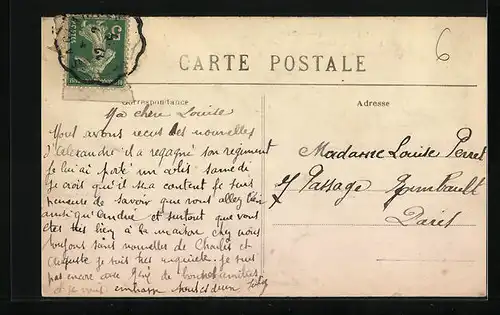 6
CARTE POSTALE
Correspondance
Adresse
Ma chere Louise
Nous avons recut des nouvelles
d'Alexandre il a regagné son regiment
je lui ai porté un colis samedi
je croit qu'il sera content je suis
heureuse de savoir que vous allez bien
ainsi qu'André et surtout que vous
etes tres bien à la maison chez nous
toujours sans nouvelles de Charles et
Auguste je suis tres inquiete je suis
pas encore avec
je embrasse tous
Madame Louise Perret
7 Passage
Paris